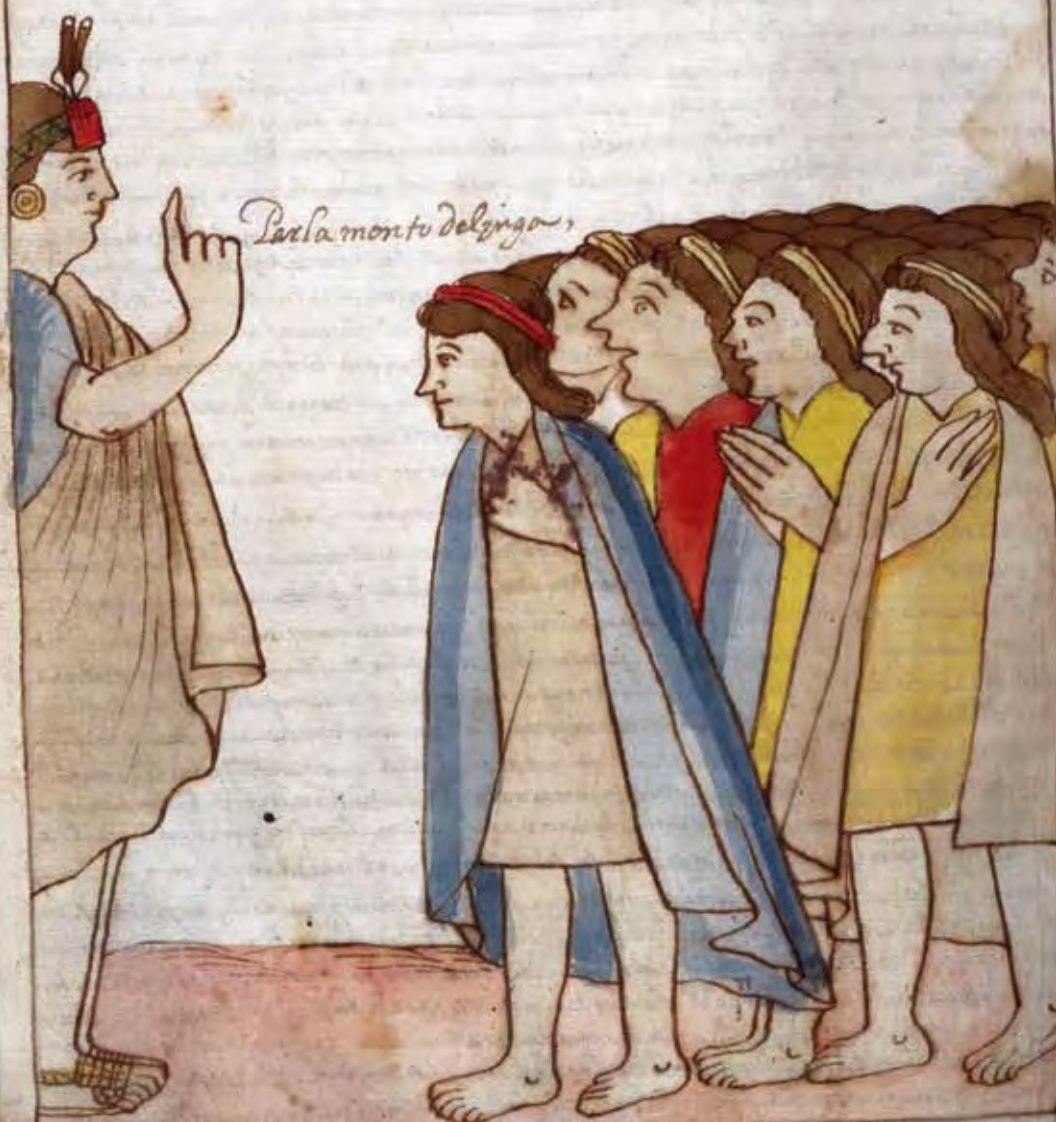 Parlamonto del ynga,